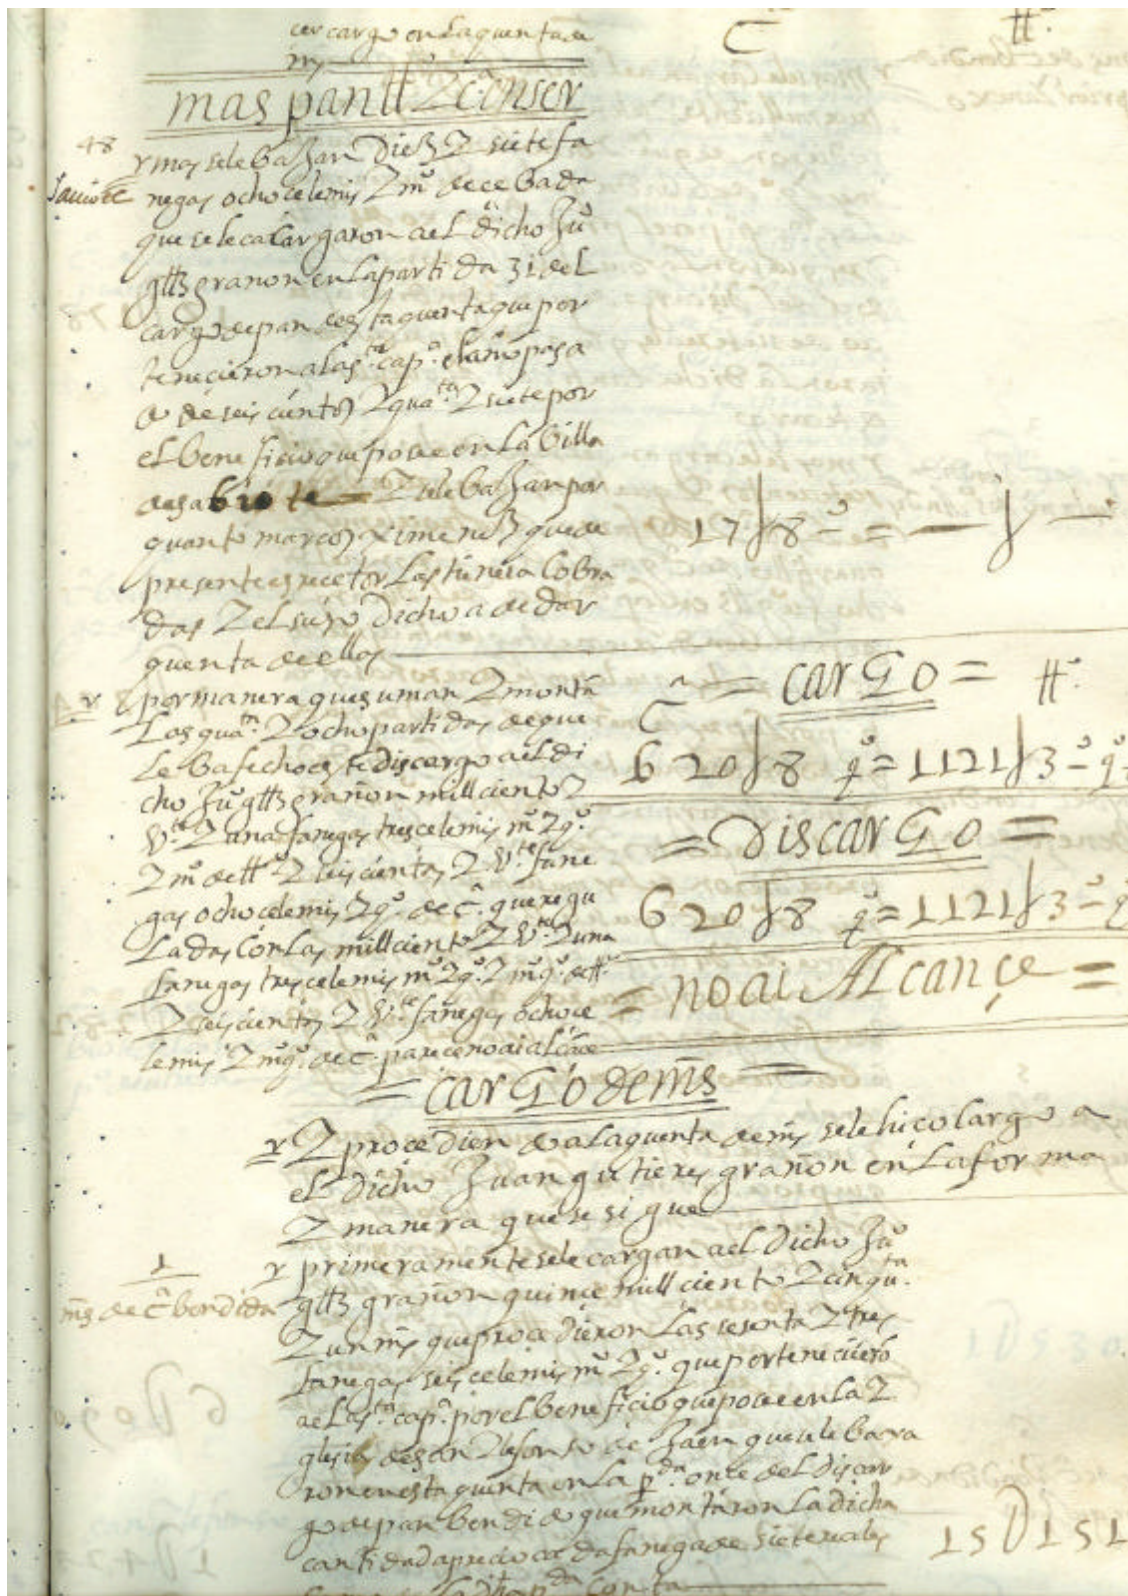 cer cargo en la quenta de
mrs
C tt.º
mas pan tt.º Z c.ª en ser
48
Saviote
Y mas se le baJan dieZ Z siete fa
negas ocho celemis Z m.º de cebada
que se le cargaron a el dicho Ju.º
gttZ grañon en la partida 31 del
cargo de pan desta quenta que per
tenecieron a la s.ta cap.ª el año pasa
do de seis cientos Z qua.ta Z siete por
el beneficio que posee en la billa
de sabiote Z se le baJan por
quanto marcos ximeneZ que de
presente es recetor las tiene a cobra
das Z el suso dicho a de dar
quenta de ellas
17 U 8 =
por manera que suman Z montã
Las qua.ta Z ocho partidas de que
Le ba fecho este discargo a el di
cho Ju.º gttZ grañon mill ciento Z
v.te Z una fanegas tres celemis m.º Z q.º
Z m.º de tt.º Z seis cientas Z v.te fane
gas ocho celemis Z q.º de c.ª que regu
Ladas con las mill ciento Z v.te Z una
fanegas tres celemis m.º Z q.º Z m.º q.º de tt.º
Z seis cientas Z v.te fanegas ocho ce
lemis Z m.º q.º de c.ª parece no ai alcãce
C = carGo = tt.º
620 U 8 q.º = 1121 U 3 = q.º
= DiscarGo =
620 U 8 q.º = 1121 U 3 = q
= no ai ALcançe =
= carGo de mrs =
Y Z procediendo a la quenta de mrs se le hiço cargo a
el dicho Juan gutieres grañon en la forma
Z manera que se si gue
1
mrs de c.ª bendida
Y primeramente se le cargan a el dicho Ju.º
gttZ grañon quince mill ciento Z cinqu.ta
Z un mrs que procedieron Las sesenta Z tres
fanegas seis celemis m.º Z q.º que pertenecierõ
a e La s.ta cap.ª por el beneficio que posee en la Z
glesia de san Ilefonso de Jaen que se le baxa
ron en esta quenta en la p.da once del discar
go de pan bendido que montaron La dicha
cantidad a precio cada fanega de siete reales
15 U 151